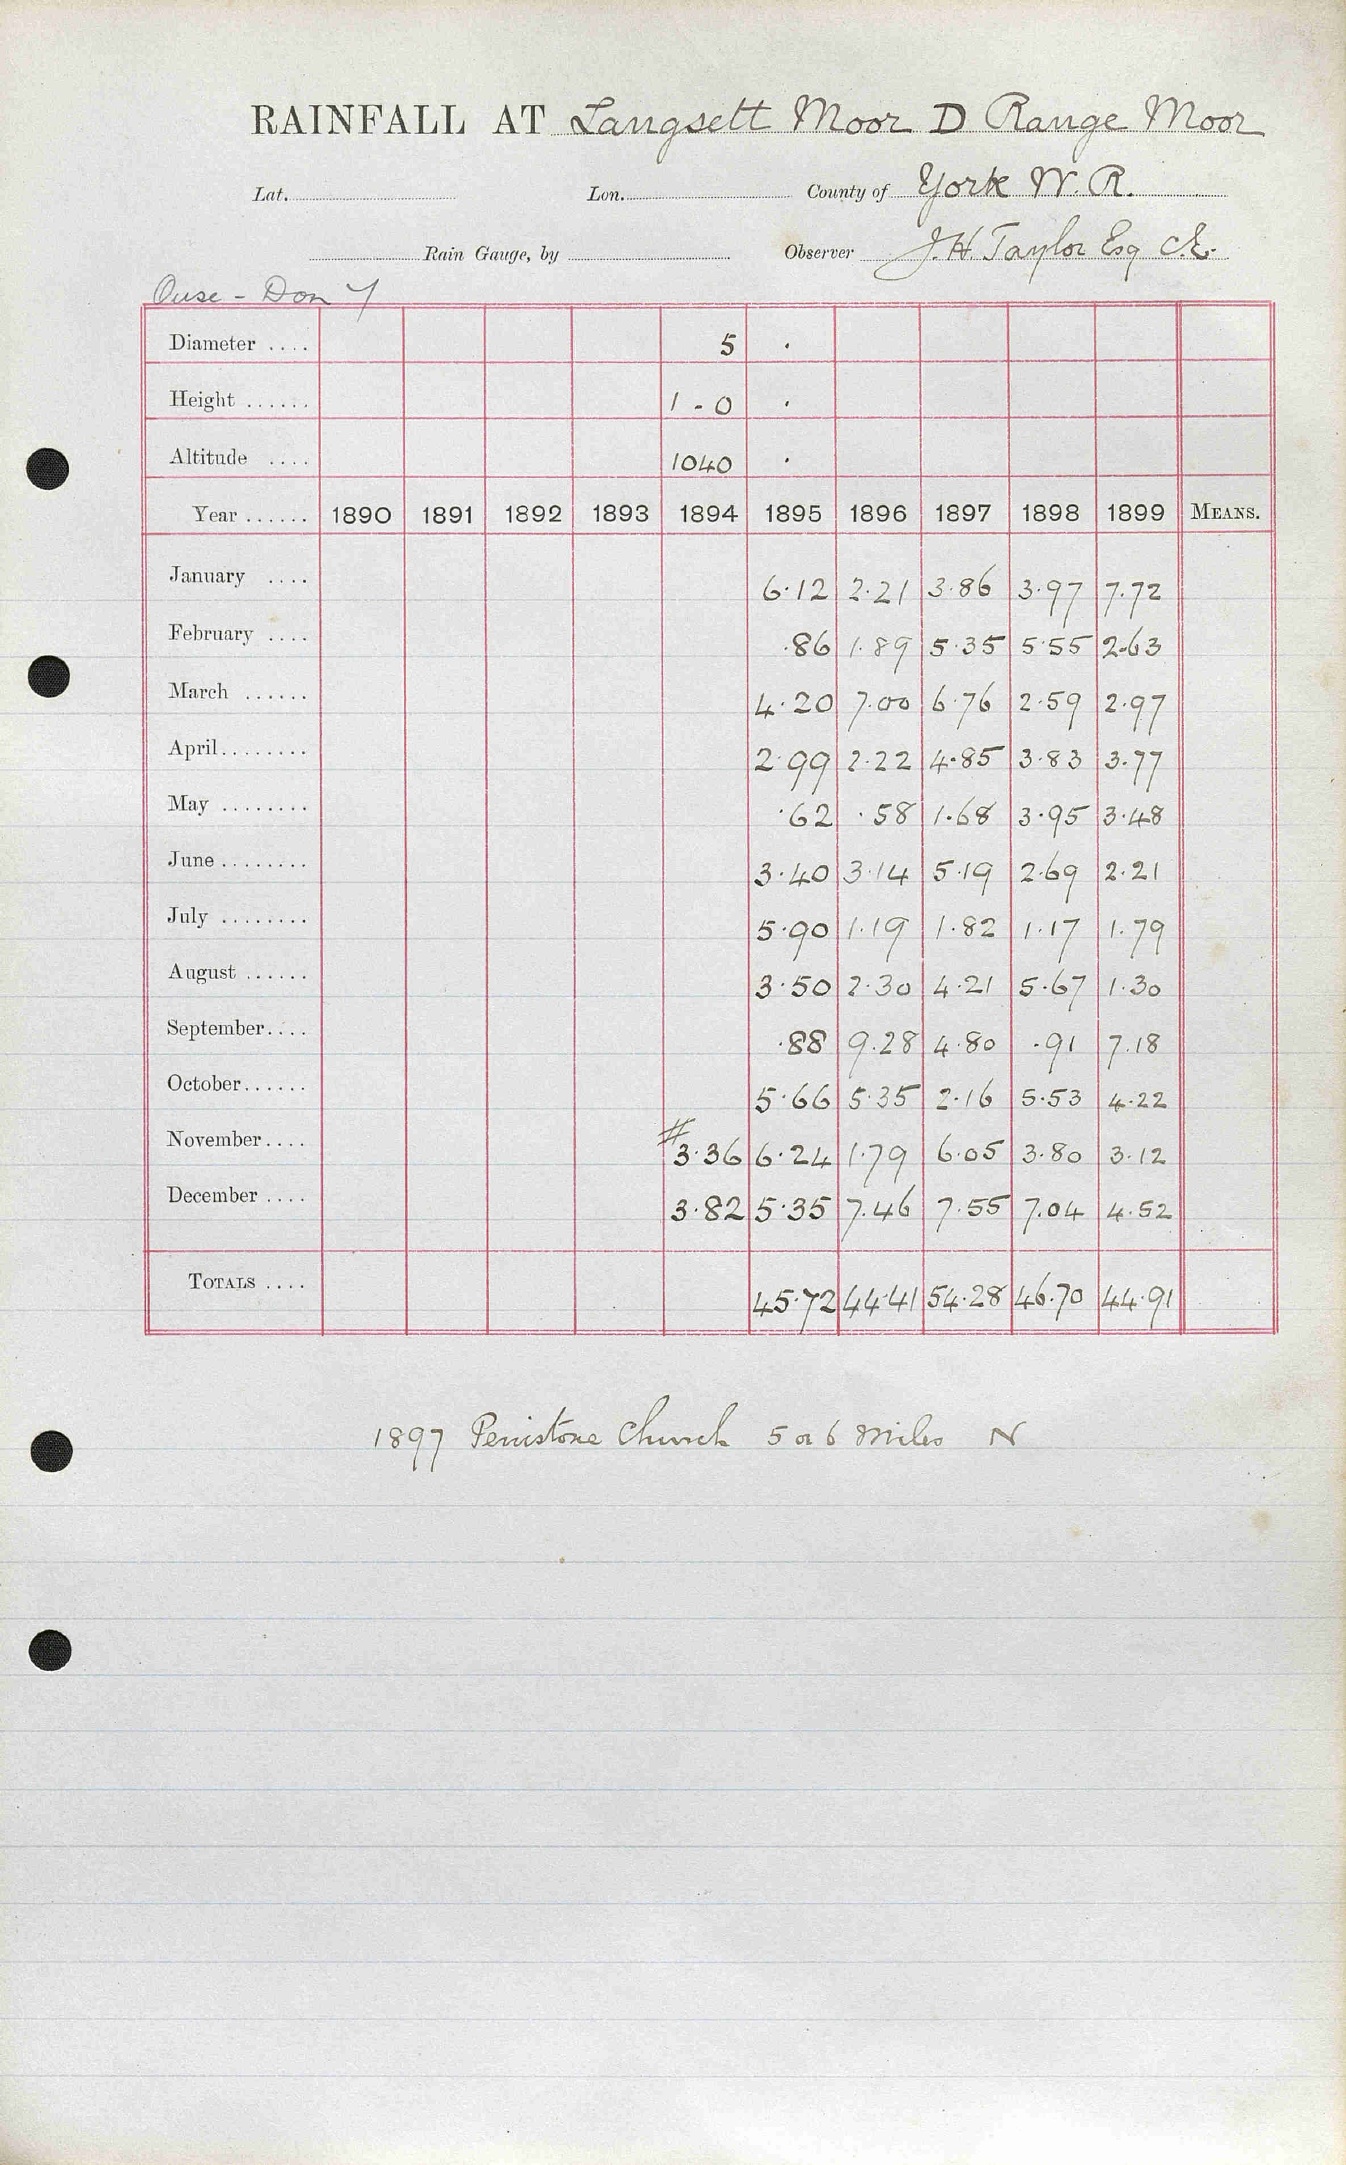 RAINFALL AT Langsett Moor D Range Moor
Lat. Lon. County of York W. R.
Rain Gauge, by Observer J. H. Taylor Esq C.E.
Ouse - Don
Diameter .... 5 .
Height ...... 1 - 0 .
Altitude .... 1040 .
Year ...... 1890 1891 1892 1893 1894 1895 1896 1897 1898 1899 MEANS.
January .... 6.12 2.21 3.86 3.97 7.72
February .... .86 1.89 5.35 5.55 2.63
March ...... 4.20 7.00 6.76 2.59 2.97
April........ 2.99 2.22 4.85 3.83 3.77
May ........ .62 .58 1.68 3.95 3.48
June........ 3.40 3.14 5.19 2.69 2.21
July ........ 5.90 1.19 1.82 1.17 1.79
August ...... 3.50 2.30 4.21 5.67 1.30
September.... .88 9.28 4.80 .91 7.18
October...... 5.66 5.35 2.16 5.53 4.22
November.... # 3.36 6.24 1.79 6.05 3.80 3.12
December .... 3.82 5.35 7.46 7.55 7.04 4.52
TOTALS .... 45.72 44.41 54.28 46.70 44.91
1897 Penistone Church 5 or 6 miles N